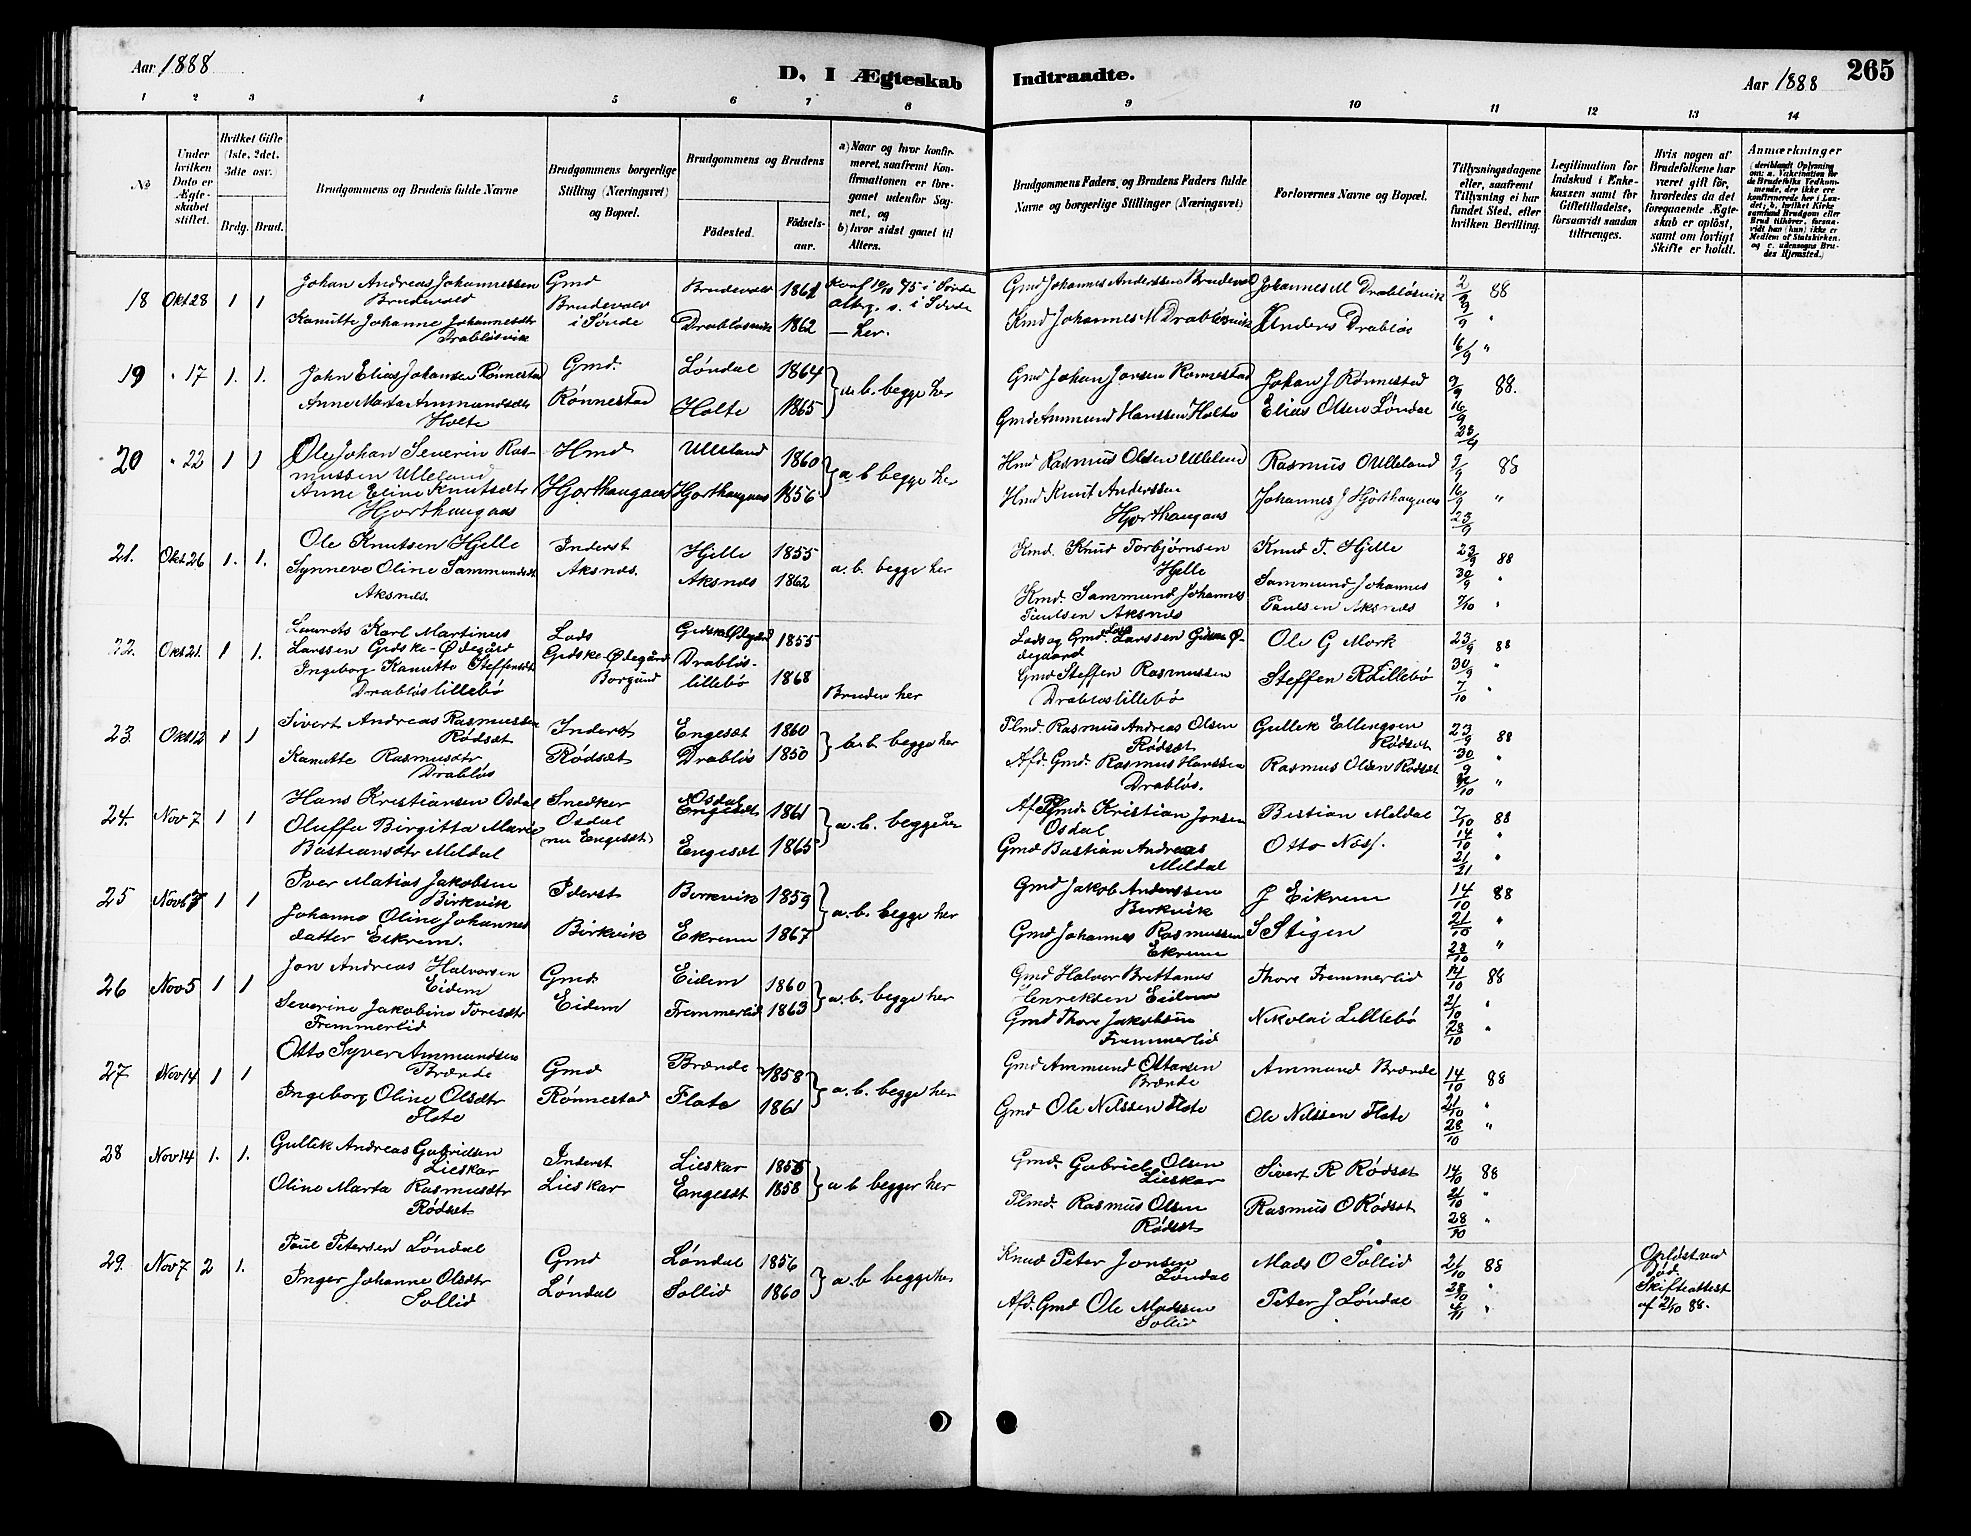 Aar 1888
D, I Ægteskab
Indtraadte.
Aar 1888
265
1 2 3 4 5 6 7 8 9 10 11 12 13 14
No
Under hvilken Dato er Ægteskabet stiftet.
Hvilket Gifte (1ste, 2det, 3die osv.)
Brdg. Brud.
Brudgommens og Brudens fulde Navne
Brudgommens borgerlige Stilling (Næringsvei) og Bopæl.
Brudgommens og Brudens
Födested.
Födsels-aar.
a) Naar og hvor konfirmeret, saafremt Konfirmationen er foregaaet udenfor Sognet, og
b) hvor sidst gaaet til Alters.
Brudgommens Faders, og Brudens Faders fulde Navne og borgerlige Stillinger (Næringsvei)
Forlovernes Navne og Bopæl.
Tillysningsdagene eller, saafremt Tillysning ei har fundet Sted, efter hvilken Bevilling.
Legitimation for Indskud i Enkekassen samt for Giftetilladelse, forsaavidt saadan tiltrænges.
Hvis nogen af Brudefolkene har været gift før, hvorledes da det foregaaende Ægteskab er oplöst, samt om lovligt Skifte er holdt.
Anmærkninger
18 Okt 28 1 1 Johan Andreas Johannessen Brudevold Gmd Brudevold i Sönde Brudevold 1861
Kanutte Johanne Johannesdtr Drabløsvik Drabløsvik 1862 – her.
Gmd Johannes Anderssen Brudevold Johannes M Drabløsvik 2/9 88
Kmd Johannes M Drabløsvik Anders Drabløs 9/9 "
16/9 "
19 " 17 1. 1. John Elias Johansen Rønnestad Gmd. Rønnestad Løndal 1864 a. b. begge her
Anne Marta Ammundsdtr Holte Holte 1865
Gmd Johan Jonsen Rønnestad Johan J Rønnestad 9/9 88.
Gmd Ammund Hanssen Holte Elias Olsen Løndal 16/9
23/9
20 " 22 1 1 Ole Johan Severin Rasmussen Ulleland Hmd Hjorthaugaas Ulleland 1860 a. b begge her
Anne Eline Knutsdtr Hjorthaugaas Hjorthaugaas 1856
Hmd Rasmus Olsen Ulleland Rasmus O Ulleland 9/9 88
Hmd Knut Anderssen Hjorthaugaas Johannes J Hjorthaugaas 16/9 "
23/9
21. Okt 26 1. 1. Ole Knutsen Hjelle Inderst Aksnes. Hjelle 1855 a. b. begge her
Synneve Oline Sammundsdt Aksnes. Aksnes 1862
Kmd. Knud Torbjørnsen Hjelle Knud T. Hjelle 23/9 88
Kmd. Sammund Johannes Paulsen Aksnes Sammund Johannes Paulsen Aksnes 30/9 "
7/10 "
22. Okt 21. 1 1. Laurits Karl Martinus Larssen Gidske-Ødegård Lods Gidske-Ødegård Borgund Gidske Ødegård 1855
Ingeborg Kanutte Steffensdt Drabløslillebø Drabløslillebø 1868 Bruden her
Lods og Gmd. Lars Larssen Gidske Ødegaard Ole G Mork 23/9 88
Gmd Steffen Rasmussen Drabløslillebø Steffen R Lillebø 30/9 "
7/10 "
23. Okt 12 1 1 Sivert Andreas Rasmussen Rødsæt Inderst Rødsæt Engesæt 1860 a. b. begge her
Kanutte Rasmusdtr Drabløs Drabløs 1850
Plmd. Rasmus Andreas Olsen Rødsæt Gullik Ellingsen Rødset 23/9 88
Afd. Gmd. Rasmus Hanssen Drabløs. Rasmus Olsen Rødsæt 30/9 "
7/10 "
24. Nov 7 1 1 Hans Kristiansen Osdal Snedker Osdal (nu Engesæt) Osdal 1861 a. b. begge her
Oluffa Birgitta Marie Bastiansdtr Meldal Engesæt 1865
Afd. Plmd. Kristian Jonsen Osdal Bestian Meldal 7/10 88
Gmd Bastian Andreas Meldal Otto Næss. 14/10 "
21/10 "
25 Nov 1 1 Iver Matias Jakobsen Birkvik Iderst Birkvik Birkvik 1859 a. b. begge her
Johanne Oline Johannesdatter Eikrem. Ekrem 1867
Gmd Jakob Anderssen Birkvik J Eikrem 14/10 88
Gmd Johannes Rasmussen Ekrem S Stigen 21/10 "
28/10 "
26 Nov 5 1 1 Jon Andreas Halvorsen Eidem Gmd. Eidem Eidem 1860 a. b. begge her
Severine Jakobine Toresdtr Fremmerlid Fremmerlid 1863
Gmd Halvor Brettanus Henriksen Eidem Thore Fremmerlid 14/10 88
Gmd Thore Jakobsen Fremmerlid Nikolai Lillebø 21/10 "
28/10 "
27 Nov 14 1 1 Otto Syver Ammundsen Brænde Gmd Rønnestad Brænde 1858 a. b. begge her
Ingeborg Oline Olsdtr Flate Flate 1861
Gmd Ammund Ottosen Brænde Ammund Brænde 14/10 88
Gmd Ole Nilssen Flote Ole Nilssen Flote 21/10 "
28/10 "
28 Nov 14 1. 1. Gullik Andreas Gabrielsen Lieskar Inderst Lieskar Lieskar 1855 a b begge her
Oline Marta Rasmusdtr Rødset Engesæt 1858
Gmd. Gabriel Olsen Lieskar Sivert R Rødsæt 14/10 88
Plmd. Rasmus Olsen Rødset Rasmus O Rødsæt 21/10 "
28/10 "
29. Nov 7 2 1. Paul Petersen Løndal Gmd Løndal Løndal 1856 a. b begge her
Inger Johanne Olsdtr Sollid Sollid 1860
Kmd Peter Jonsen Løndal Mads O Sollid 21/10 88 Opløst ved Død. Skifteattest af 2/10 88.
Afd. Gmd Ole Madssen Sollid Peter J Løndal 28/10 "
4/11 "